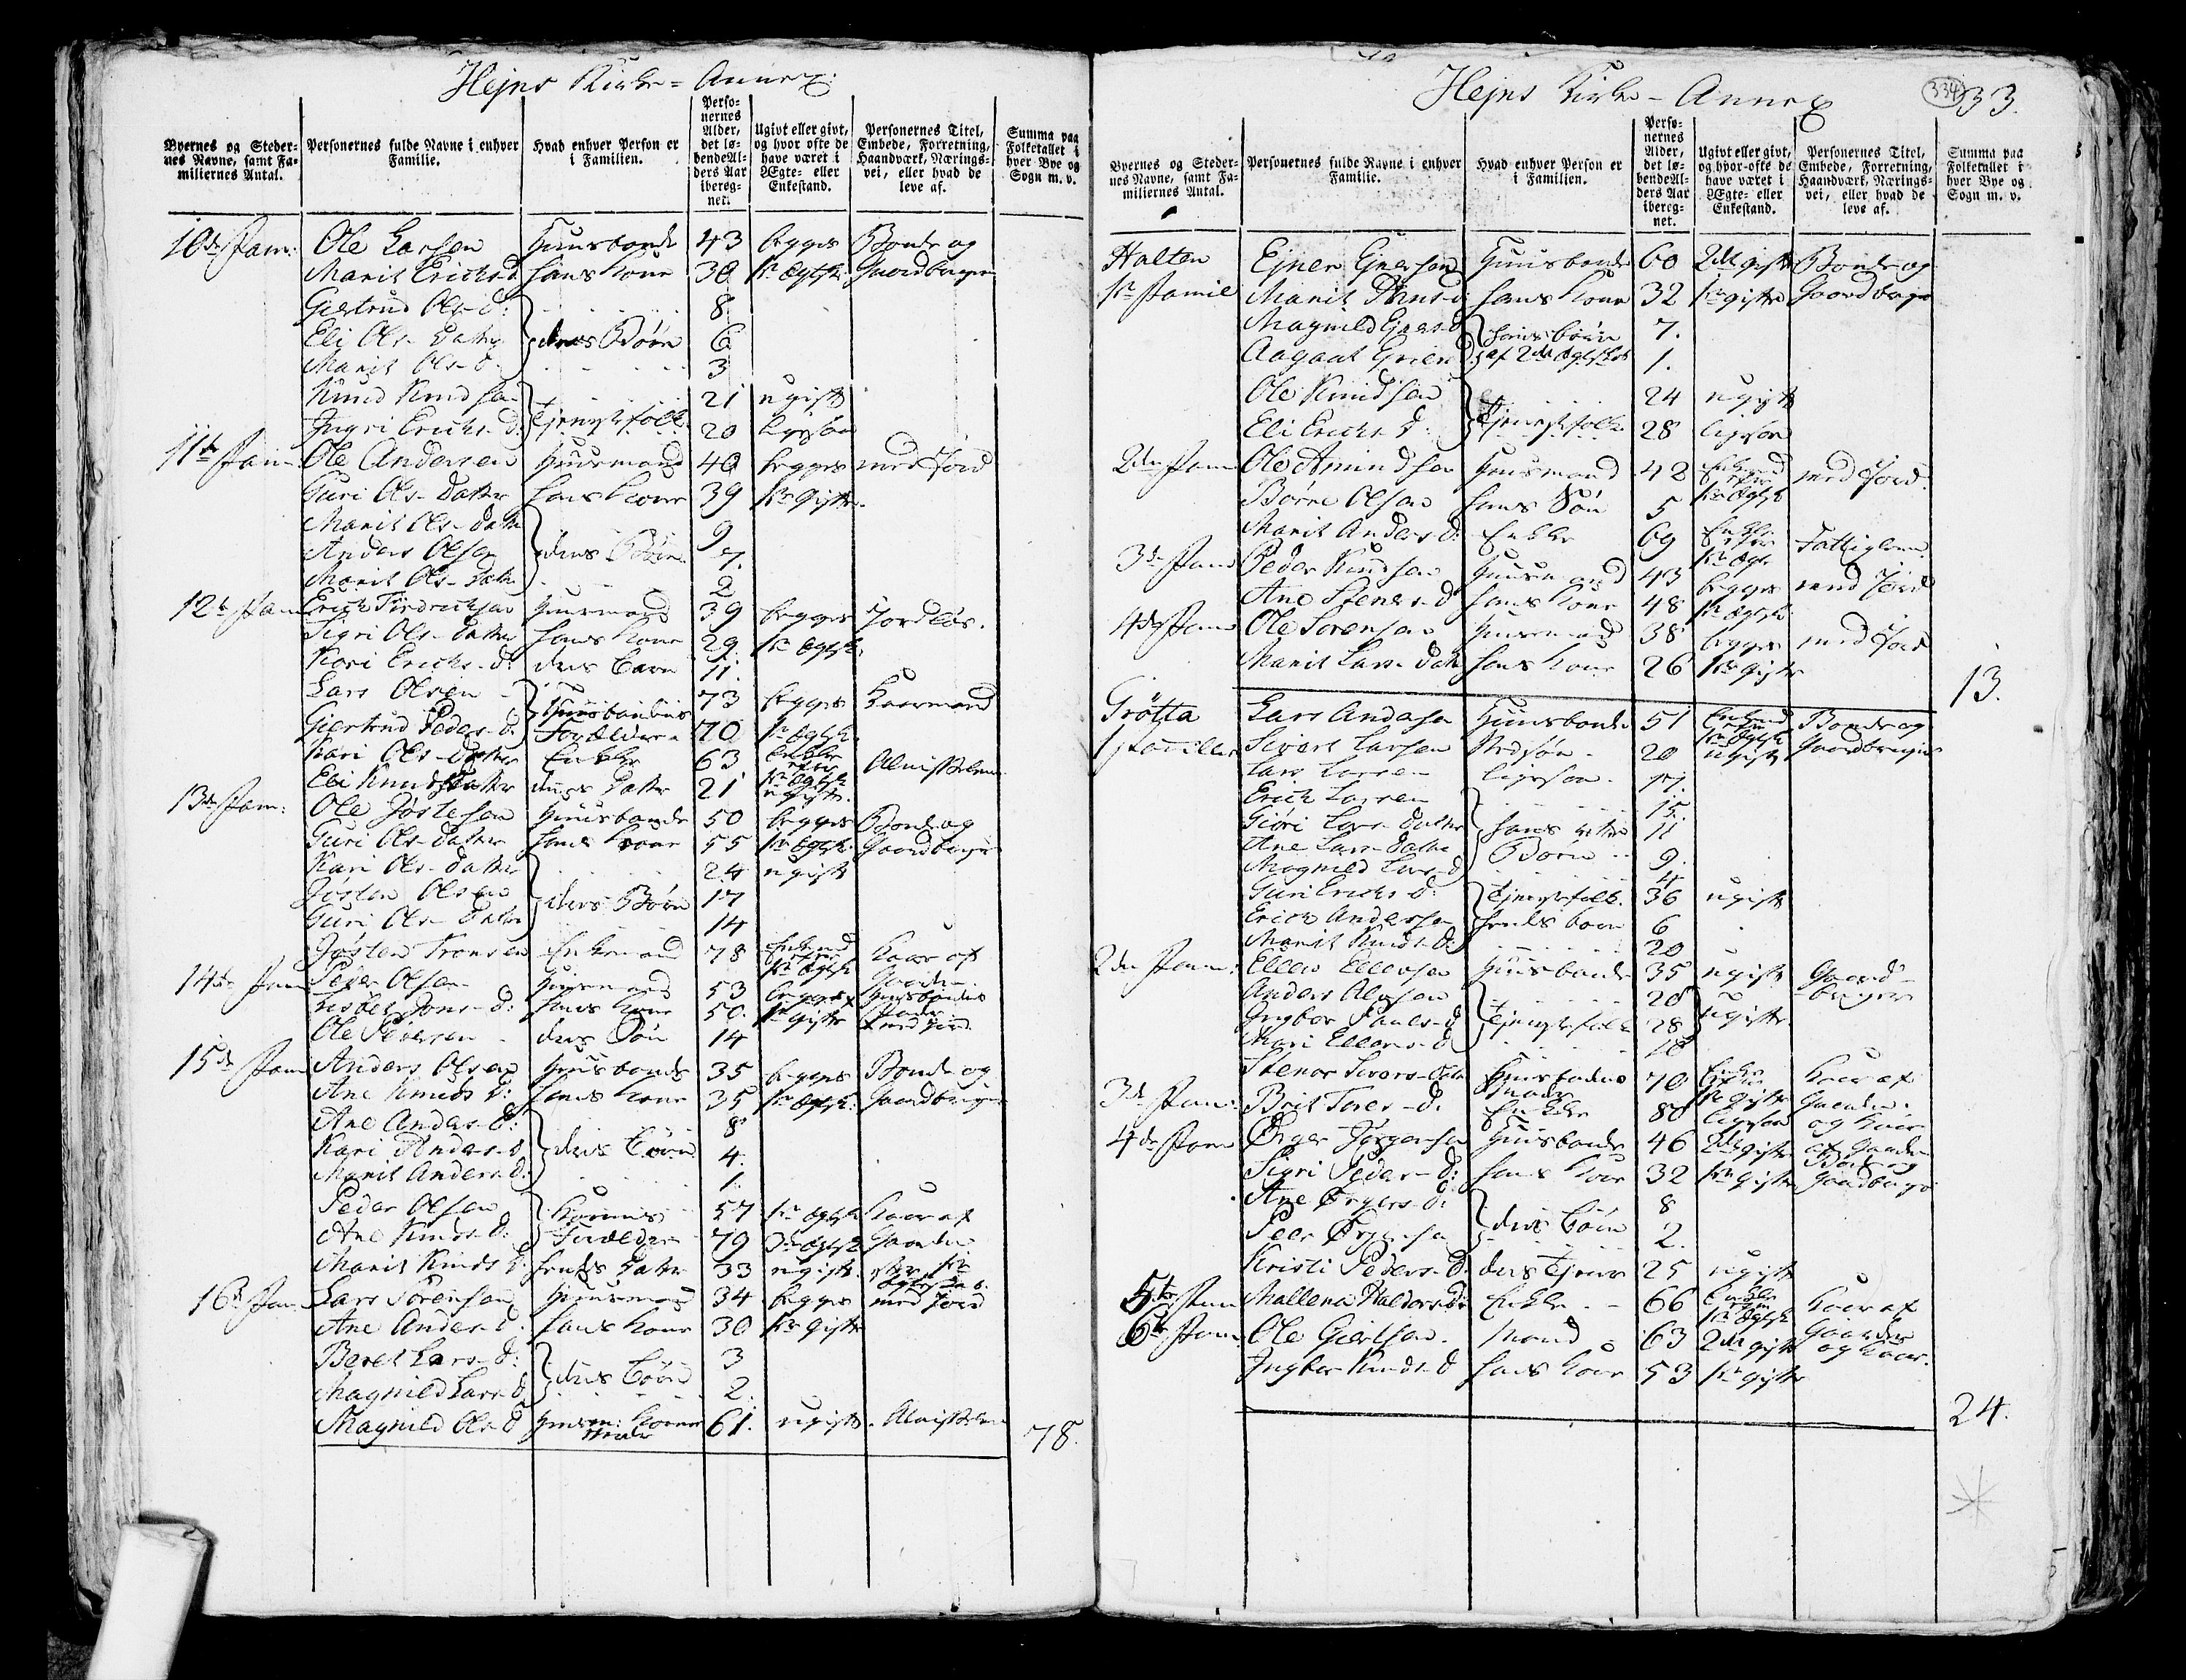 Hejns Kirke = Annex:
Byernes og Steder-nes Navne, samt Fa-miliernes Antal. Personernes fulde Navne i enhver Familie. Hvad enhver Person er i Familien. Perso-nernes Alder, det lø-bende Al-ders Aar ibereg-net. Ugivt eller givt, og hvor ofte de have været i Ægte- eller Enkestand. Personernes Titel, Embede, Forretning, Haandværk, Nærings-vei, eller hvad de leve af. Summa paa Folketallet i hver Bye og Sogn m. v.
10de Fam: Ole Larsen Huusbonde 43 begges Bonde og
Marit Erichs D hans Kone 30 1ste Ægtsk. Gaardbruger
Giertrud Ols-D: 8
Eli Ols-Datter deres Børn 6
Marit Ols-D: 3
Knud Knudsen 21 ugift
Ingri Erichs-D: Tjenestfolk 20 ligesaa
11te Fam Ole Andersen Huusmand 40 begges med Jord
Guri Ols-Datter hans Kone 39 1ste Gifte.
Marit Ols-Datter 9
Anders Olsen deres Børn 7.
Marit Ols-Datter 2
12te Fam Erich Fredrichsen Huusmand 39 begges Jordløs.
Sigri Ols-Datter hans Kone 29. 1ste Ægtsk.
Kari Erichs-D: deres Barn 11.
Lars Olsen Huusbondens 73 begges Kaarmand
Giertrud Peders-D. Forældre 70 1ste Ægtsk.
Kari Ols-Datter Enke 63 Enke efter 1ste Ægtsk. Almisselem
Eli Knudsdatter hendes Datter 21 ugift.
13de Fam: Ole Jøstesen Huusbonde 50 begges Bonde og
Guri Ols-Datter hans Kone 55 1ste Ægtsk. Gaardbruger
Kari Ols-Datter 24 ugift
Jøsten Olsen deres Børn 17
Guri Ols-Datter 14
Jøsten Tronsen Enkemand 78 Enkemd efter 1ste Ægtsk Kaar af Gaarden
14de Fam Peder Olsen Huusmand 53 begges
Lisbet Jons-D: hans Kone 50. 1ste Gifte med Jord
Ole Pedersen deres Søn 14
15de Fam Anders Olsen Huusbonde 35 begges Bonde og
Ane Knuds D: hans Kone 35 1ste Ægtsk: Gaardbruger
Ane Anders-D: 8
Kari Anders-D deres Børn 4.
Marit Anders-D: 1.
Peder Olsen Konens 57 1ste Ægtsk Kaar af
Ane Knuds-D: Forældre 79 3de Ægtsk Gaarden
Marit Knuds D: hendes Datter 33 ugift.
16de Fam Lars Sørensen Huusmand 34 begges med Jord
Ane Anders-D. hans Kone 30 1ste Gifte
Beret Lars-D: 3
Magnild Lars-D deres Børn 2.
Magnild Ols-D 61. ugift. Almisselem
78.
Hejns Kirke - Annex
334 33.
Byernes og Steder-nes Navne, samt Fa-miliernes Antal. Personernes fulde Navne i enhver Familie. Hvad enhver Person er i Familien. Perso-nernes Alder, det lø-bende Al-ders Aar ibereg-net. Ugivt eller givt, og hvor ofte de have været i Ægte- eller Enkestand. Personernes Titel, Embede, Forretning, Haandværk, Nærings-vei, eller hvad de leve af. Summa paa Folketallet i hver Bye og Sogn m. v.
Halten Ejner Ejnersen Huusbonde 60 2det gifte Bonde og
1ste Famil Marit hans Kone 32 1ste gifte Gaardbruger
Magnild Ejners-D hans børn 7.
Aagaat af 2det Ægtskab 1.
Ole Knudsen 24 ugift
Eli Erichs D: Tjenestfolk 28 ligesaa
2den Fam Ole Amundsen Huusmand 42 Enkemd efter 1ste Ægtsk med Jord.
Børre Olsen hans Søn 5
Marit Anders-D: Enke 69 Enke efter 1ste Ægt. Fattiglem.
3de Fam Peder Knudsen Huusmand 43 begges med Jord
Ane Stener-D hans Kone 48 1ste Ægtsk
4de Fam Ole Sørensen Huusmand 38 begges med Jord
Marit Lars-Datter hans Kone 26 1ste Gifte
13.
Grøtta Lars Andersen Huusbonde 51 Enkemd efter 1ste Ægtsk Bonde og
1 Familie Sivert Larsen Stedsøn 20 ugift Gaardbruger
Lars Larsen ligesaa. 17.
Erich Larsen 15.
Giøri Lars-Datter hans ægte 11
Ane Lars-Datter Børn 9.
Magnild Lars-D 4
Guri Erichs-D: Tjenestfolk. 36 ugift
Erich Andersen hendes barn 6
Marit Knuds-D: 20
2den Fam: Ellen Ellensen Huusbonde 35 ugift Gaard-
Anders Olsen 28 bruger
Ingbor Pauls-D Tjenestfolk 28 ugifte
Mari Ellens-D 18
Stenar Sivers-Datter Huusbondens Moder 70 Enke efter 1ste Gifte Kaar af Gaarden.
3de Fam: Brit Tores-D. Enke 80 ligesaa og Kaar
4de Fam Ørger Jørgensen Huusbonde 46 2det gifte af Gaarden
Sigri Peders-D: hans Kone 32 1ste Gifte Bonde og Gaardbruger
Ane Ørgers-D: 8
Peder Ørgersen deres Børn 2.
Kristi Peders-D. deres Tjener 25 ugift
5te Fam Mallena Haldors-Dr Enke 66 Enke efter 1ste Ægtsk Kaar af Gaarden
6te Fam Ole Giertsen. Mand 63 2det gifte og Kaar.
Ingbor Knuds-D hans Kone 53 1ste gifte
24.